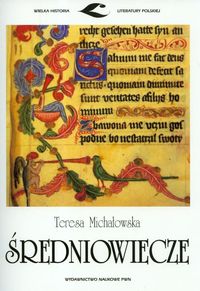 WIELKA HISTORIA
LITERATURY POLSKIEJ
recht geschen hatte syn an
Saluum me fac deus
quoniam defecit sa
nctus quoniam diminute
sunt veritates a filys ho
minum
Zbawona me vczyn gos
podne bo nestatczil swoty
Teresa Michałowska
ŚREDNIOWIECZE
WYDAWNICTWO NAUKOWE PWN